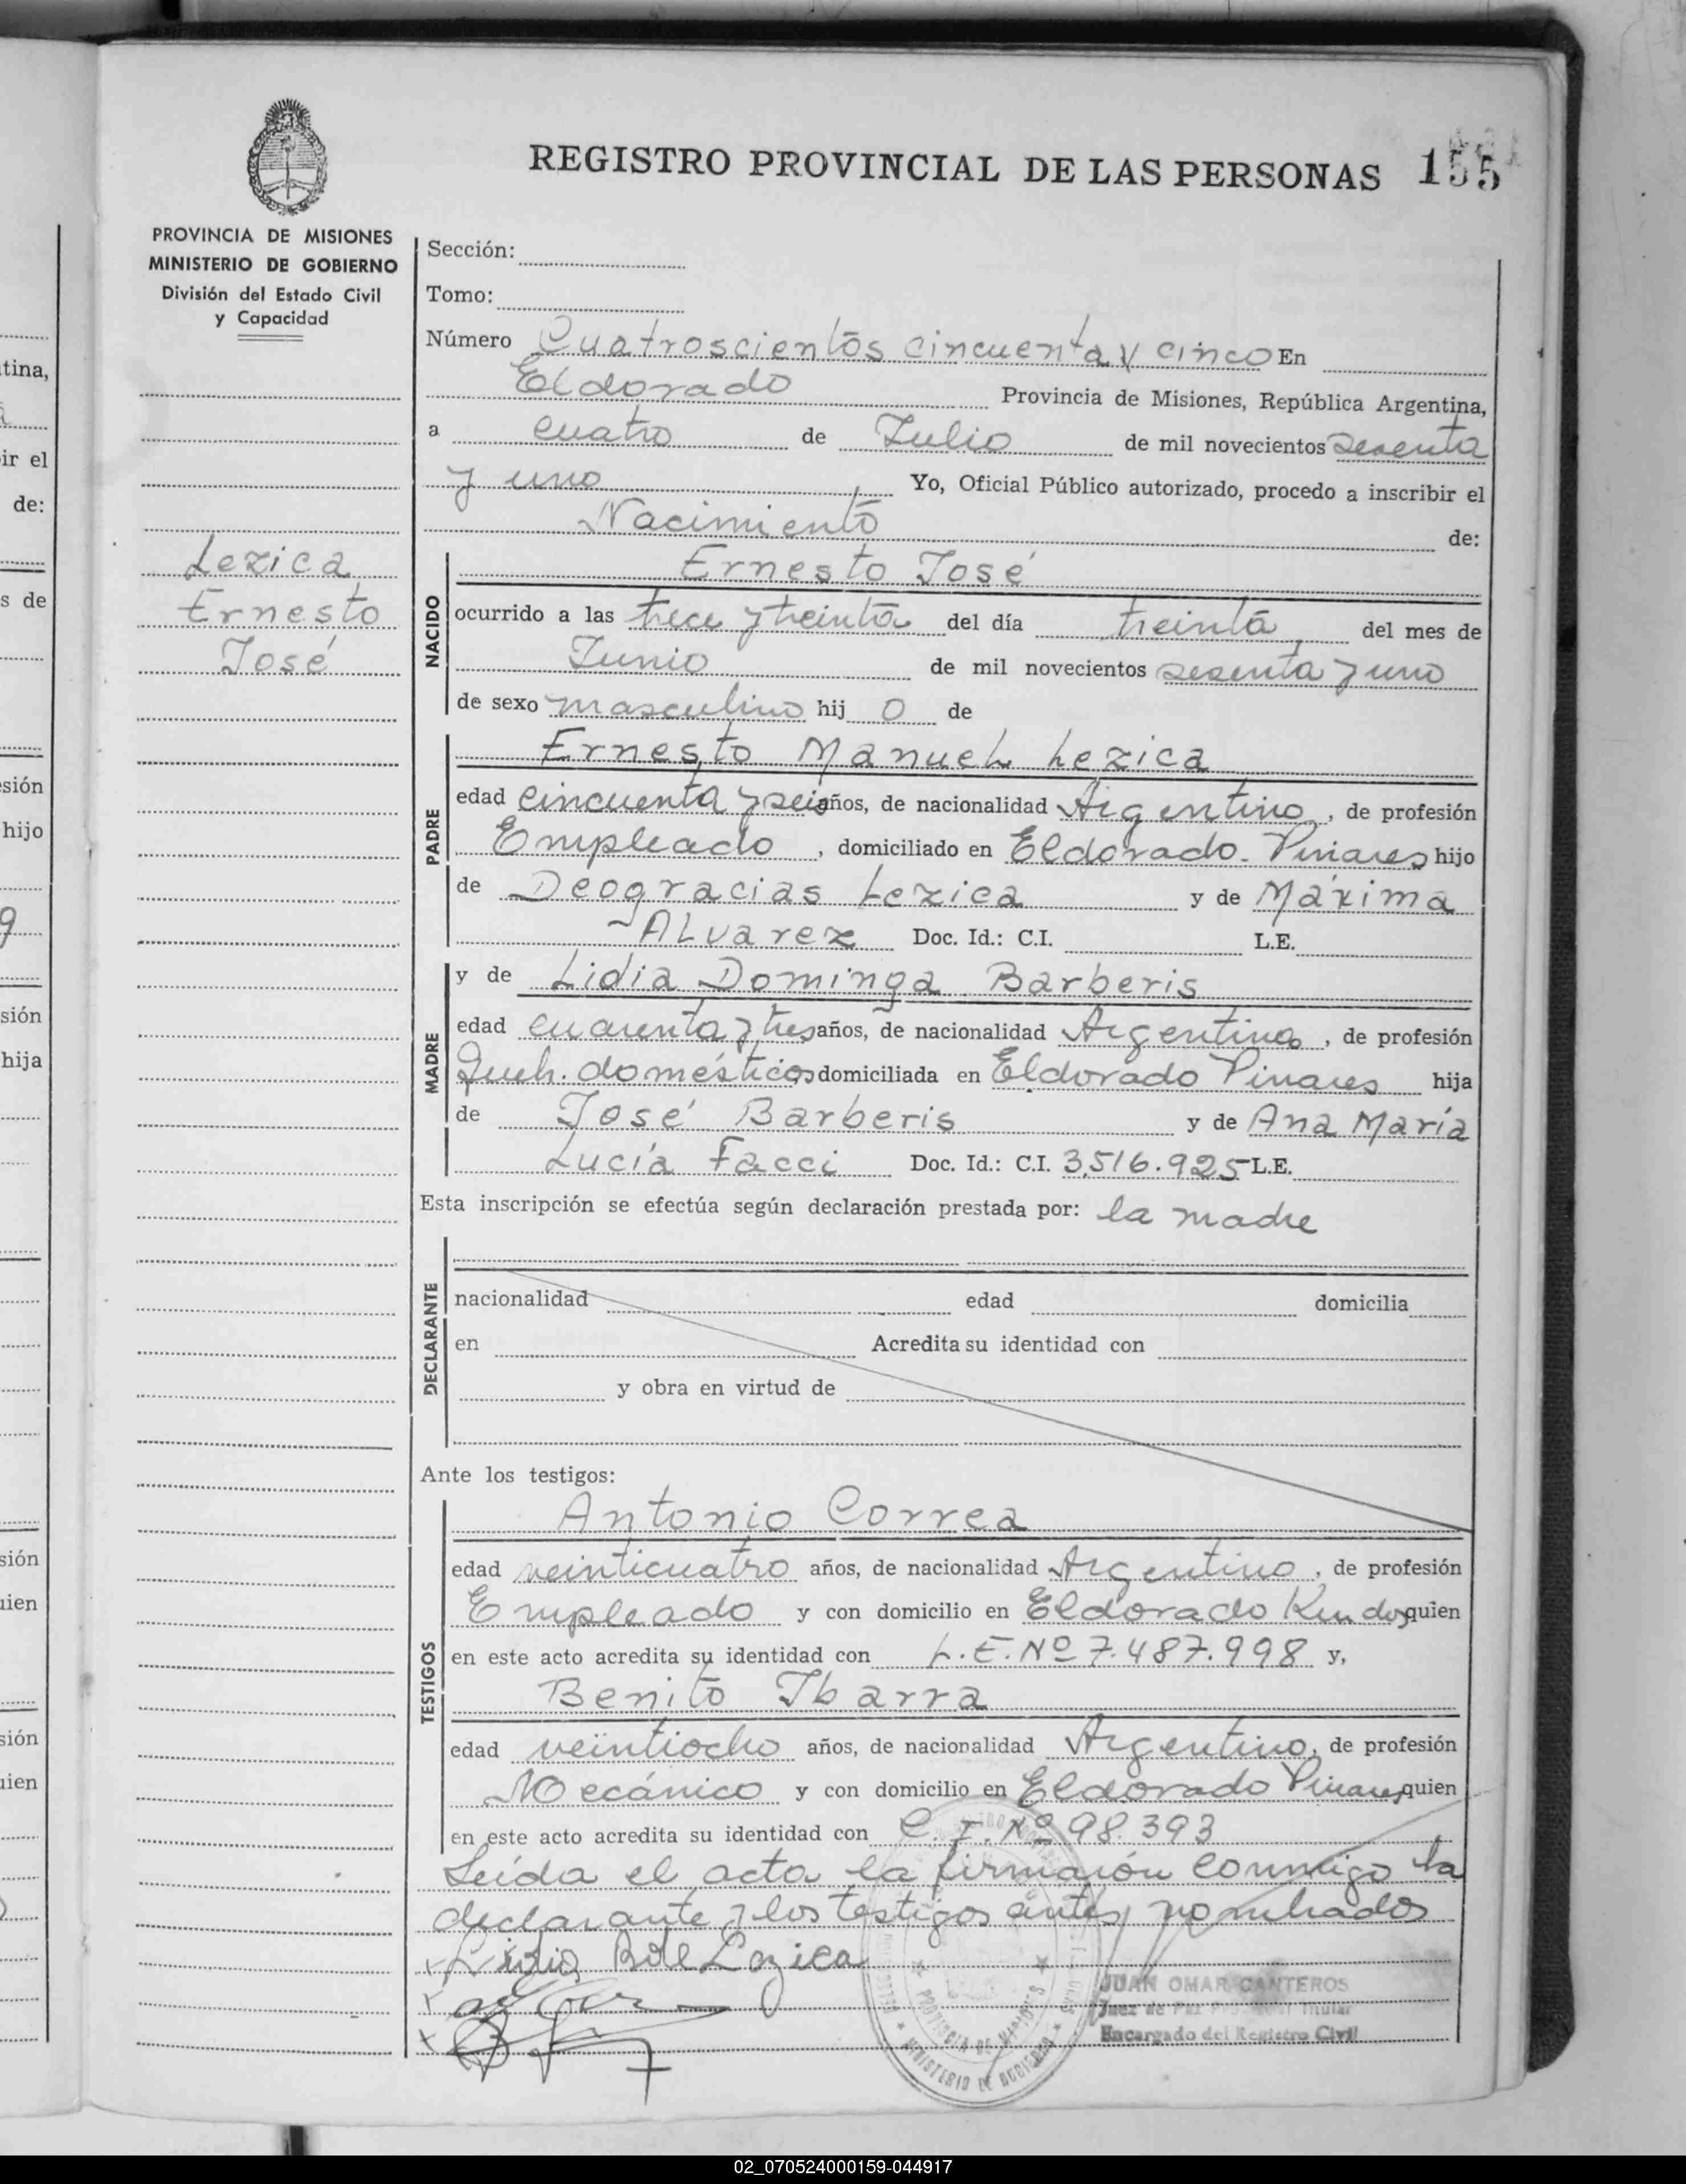 REGISTRO PROVINCIAL DE LAS PERSONAS 155
PROVINCIA DE MISIONES
MINISTERIO DE GOBIERNO
División del Estado Civil
y Capacidad
Lezica
Ernesto
José
Sección:
Tomo:
Número Cuatroscientos cincuenta y cinco En
Eldorado Provincia de Misiones, República Argentina,
a cuatro de Julio de mil novecientos sesenta
y uno Yo, Oficial Público autorizado, procedo a inscribir el
Nacimiento de:
NACIDO
Ernesto José
ocurrido a las trece y treinta del día treinta del mes de
Junio de mil novecientos sesenta y uno
de sexo masculino hij o de
PADRE
Ernesto Manuel Lezica
edad cincuenta y seis años, de nacionalidad Argentino, de profesión
Empleado, domiciliado en Eldorado. Pinares hijo
de Deogracias Lezica y de Máxima
Alvarez Doc. Id.: C.I. L.E.
MADRE
y de Lidia Dominga Barberis
edad cuarenta y tres años, de nacionalidad Argentina, de profesión
Queh. domésticos domiciliada en Eldorado Pinares hija
de José Barberis y de Ana María
Lucía Facci Doc. Id.: C.I. 3.516.925 L.E.
Esta inscripción se efectúa según declaración prestada por: la madre
DECLARANTE
nacionalidad edad domicilia
en Acredita su identidad con
y obra en virtud de
Ante los testigos:
TESTIGOS
Antonio Correa
edad veinticuatro años, de nacionalidad Argentino, de profesión
Empleado y con domicilio en Eldorado quien
en este acto acredita su identidad con L.E. Nº 7.487.998 y,
Benito Ibarra
edad veintiocho años, de nacionalidad Argentino, de profesión
Mecánico y con domicilio en Eldorado Pinares quien
en este acto acredita su identidad con C.I. Nº 98.393
Leída el acta la firmarón conmigo la
declarante y los testigos antes nombrados
Lidia B de Lezica
JUAN OMAR CANTEROS
Juez de Paz Titular
Encargado del Registro Civil
PROVINCIA DE MISIONES
MINISTERIO DE GOBIERNO
tina,
ir el
de:
s de
sión
hijo
sión
hija
sión
uien
sión
uien
02_070524000159-044917